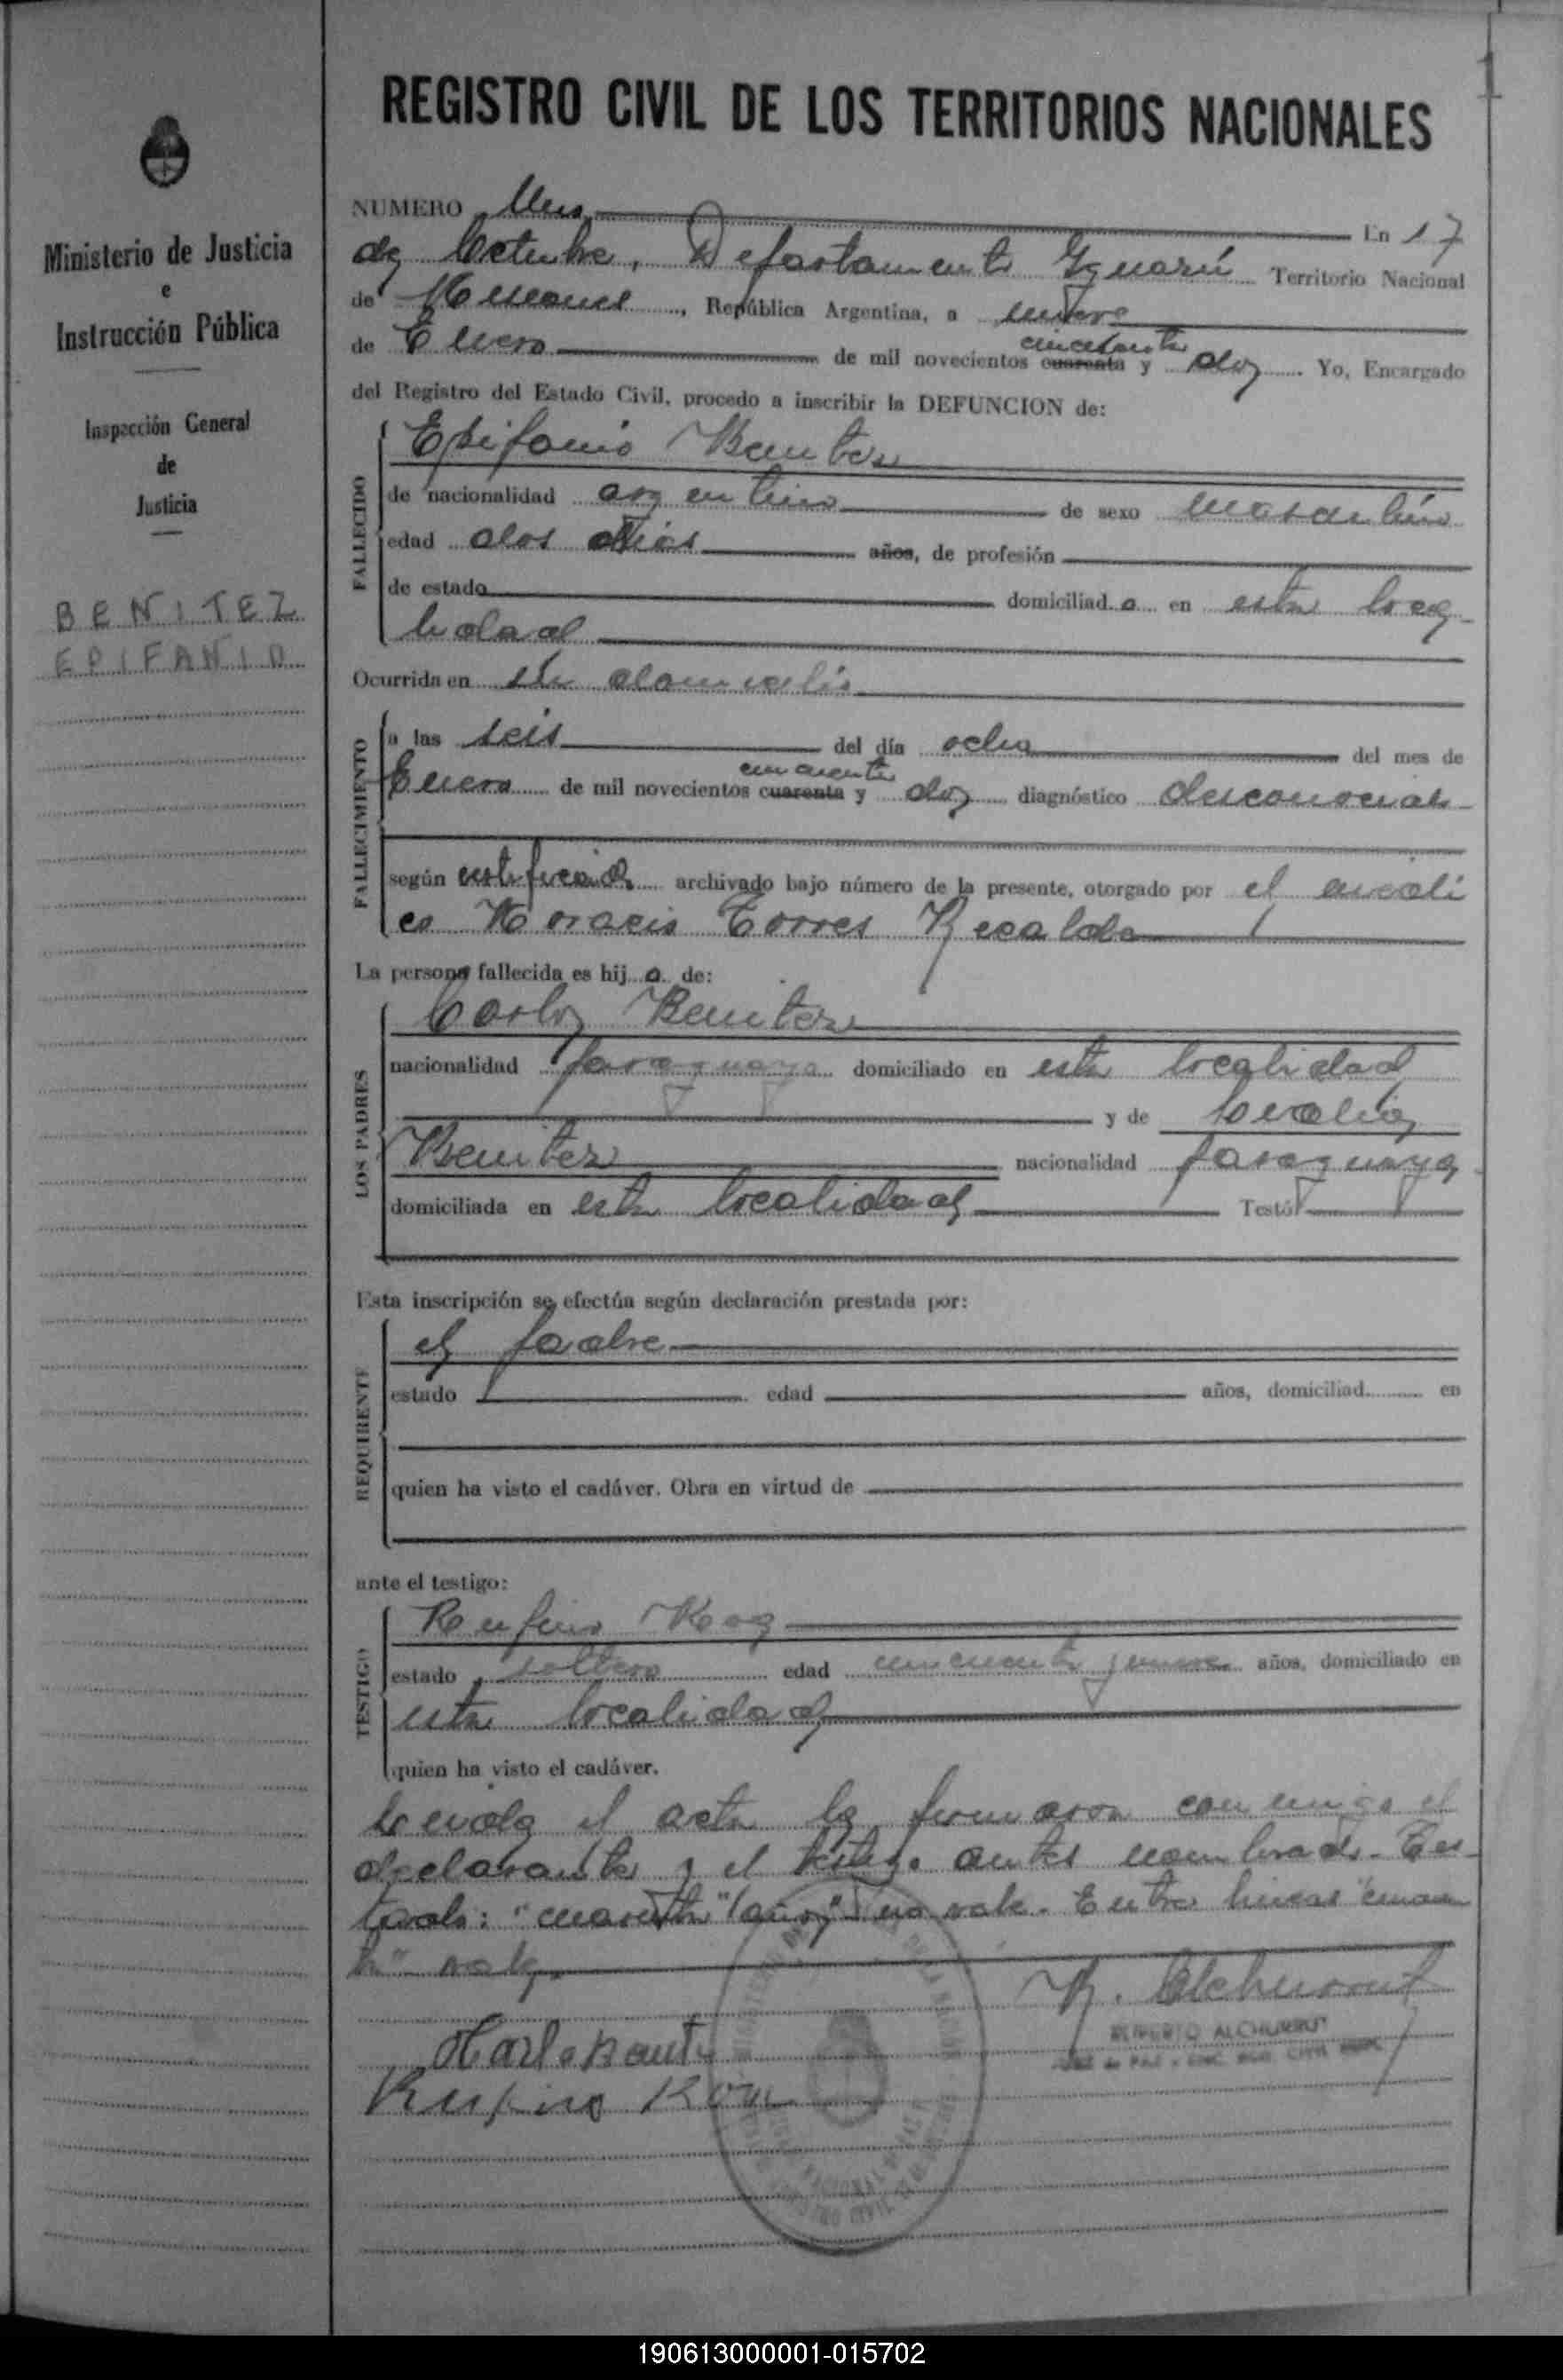 1
REGISTRO CIVIL DE LOS TERRITORIOS NACIONALES
Ministerio de Justicia
e
Instrucción Pública
Inspección General
de
Justicia
BENITEZ
EPIFANIO
NUMERO Uno En 17
de Octubre, Departamento Iguazú Territorio Nacional
de Misiones, República Argentina, a nueve
cincuenta
de Enero de mil novecientos cuarenta y dos Yo, Encargado
del Registro del Estado Civil, procedo a inscribir la DEFUNCION de:
FALLECIDO
Epifanio Benitez
de nacionalidad argentino de sexo masculino
edad dos días años, de profesión
de estado domiciliado en esta loca-
lidad
Ocurrida en su domicilio
FALLECIMIENTO
a las seis del día ocho del mes de
cincuenta
Enero de mil novecientos cuarenta y dos diagnóstico desconocido
según certificado archivado bajo número de la presente, otorgado por el médi
co Horacio Torres Recalde
La persona fallecida es hijo de:
LOS PADRES
Carlos Benitez
nacionalidad paraguaya domiciliado en esta localidad
y de
Benitez nacionalidad paraguaya
domiciliada en esta localidad Testó:
Esta inscripción se efectúa según declaración prestada por:
REQUIRENTE
el padre
estado edad años, domiciliad en
quien ha visto el cadáver. Obra en virtud de
ante el testigo:
TESTIGO
Rufino
estado soltero edad cincuenta y nueve años, domiciliado en
esta localidad
quien ha visto el cadáver.
Leída el acta la firmaron conmigo el
declarante y el testigo antes nombrado. Tes-
tado: "cuarenta" "años" no vale. Entre líneas "cincuen
ta" vale.
R. Alchurrut
RUPERTO ALCHURRUT
Rufino
190613000001-015702